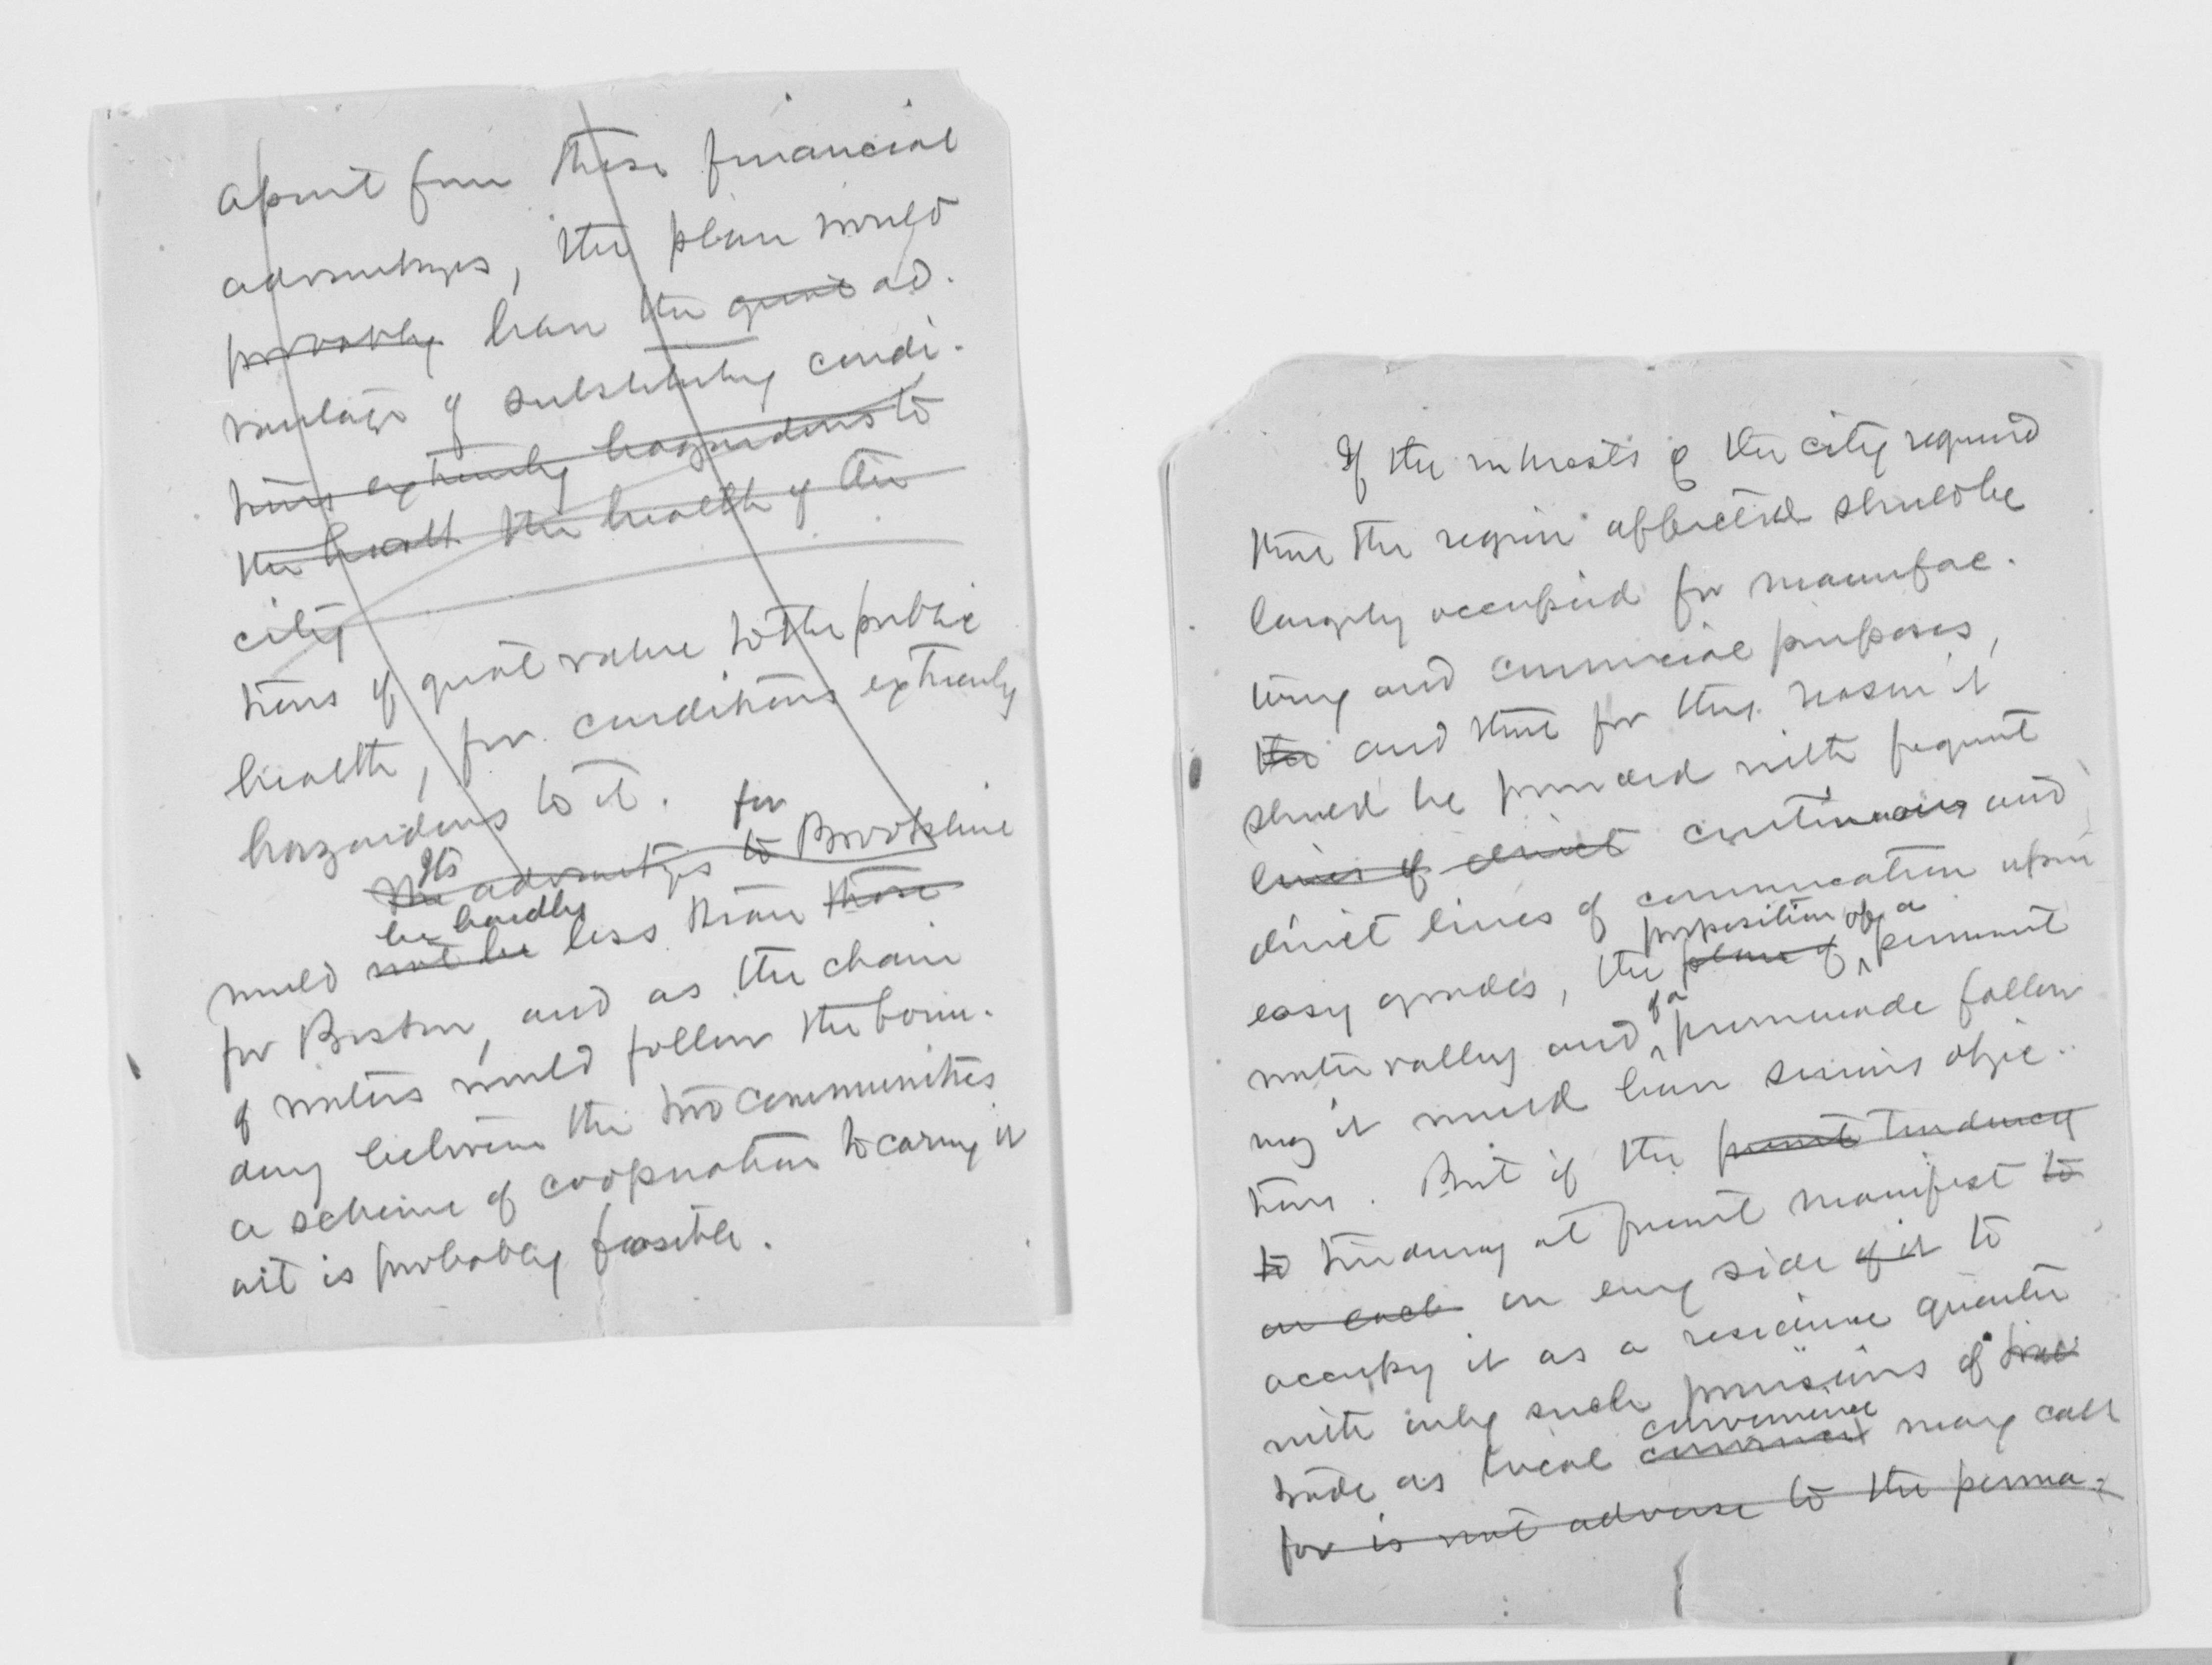 apart from these financial
advantages, the plan would
probably have the great ad-
vantage of substituting condi-
tions extremely hazardous to
the health the health of the
city
tions of great value to the public
health, for conditions extremely
hazardous to it.
for
Its
The advantages to Brookline
be hardly
would not be less than those
for Boston, and as the chain
of waters would follow the boun-
dary between the two communities
a scheme of cooperation to carry it
out is probably feasible.
If the interests of the city required
that the region affected should be
largely occupied for manufac-
turing and commercial purposes,
the and that for this reason it
should be provided with frequent
lines of direct continuous and
direct lines of communication upon
proposition of a
easy grades, the plan of permanent
of a
water valley and promenade follow
ing it would have serious objec-
tions. But if the present tendency
to tendency at present manifest to
on each on every side of it to
occupy it as a residence quarter
with only such provisions of
convenience
trade as local may call
for is not adverse to the perma-